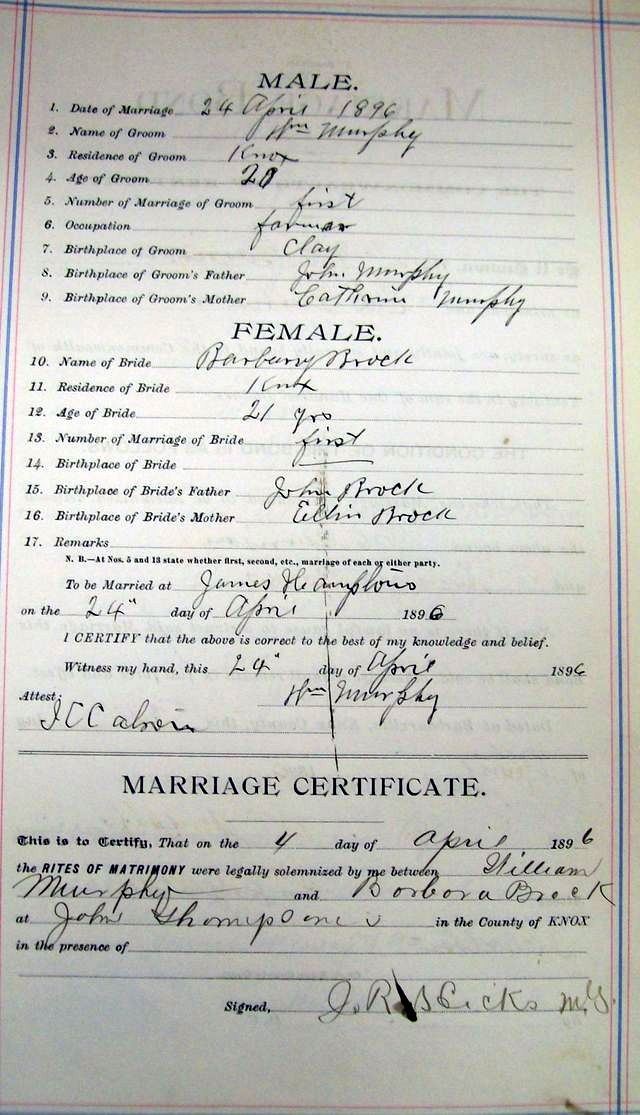 MALE.
1. Date of Marriage 24 April 1896
2. Name of Groom Wm Murphy
3. Residence of Groom Knox
4. Age of Groom
5. Number of Marriage of Groom first
6. Occupation farmer
7. Birthplace of Groom Clay
8. Birthplace of Groom's Father John Murphy
9. Birthplace of Groom's Mother Murphy
FEMALE.
10. Name of Bride Brock
11. Residence of Bride Knox
12. Age of Bride 21 yrs
13. Number of Marriage of Bride first
14. Birthplace of Bride
15. Birthplace of Bride's Father John Brock
16. Birthplace of Bride's Mother Brock
17. Remarks
N. B.—At Nos. 5 and 13 state whether first, second, etc., marriage of each or either party.
To be Married at James
on the 24" day of April 1896
I CERTIFY that the above is correct to the best of my knowledge and belief.
Witness my hand, this 24" day of April 1896
Wm Murphy
Attest:
MARRIAGE CERTIFICATE.
This is to Certify, That on the 4 day of April 1896
the RITES OF MATRIMONY were legally solemnized by me between William
Murphy and Borbora Brock
at John in the County of KNOX
in the presence of
Signed, J. R.